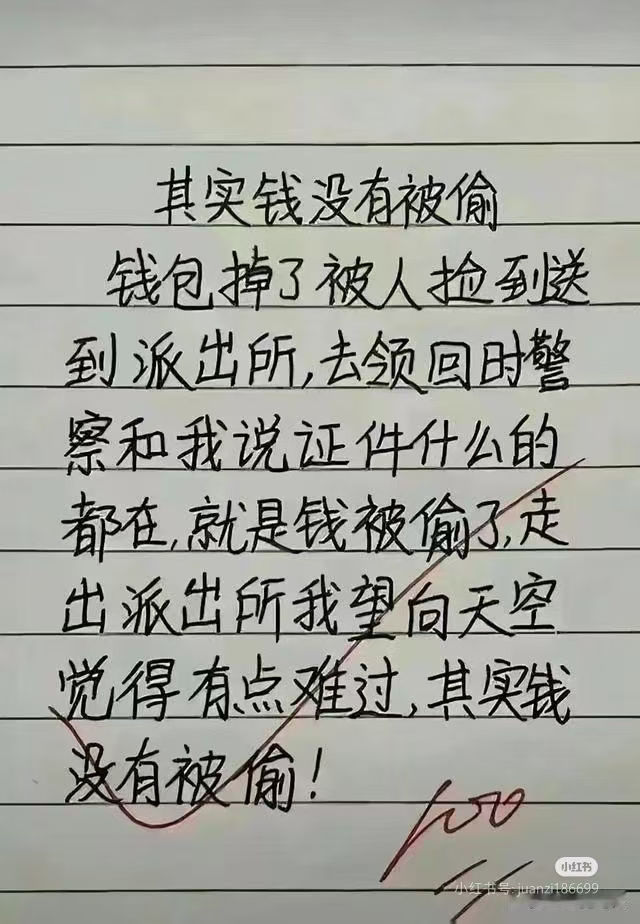 其实钱没有被偷
钱包掉了被人捡到送
到派出所,去领回时警
察和我说证件什么的
都在,就是钱被偷了,走
出派出所我望向天空
觉得有点难过,其实钱
没有被偷!
100
小红书
小红书号: juanzi186699